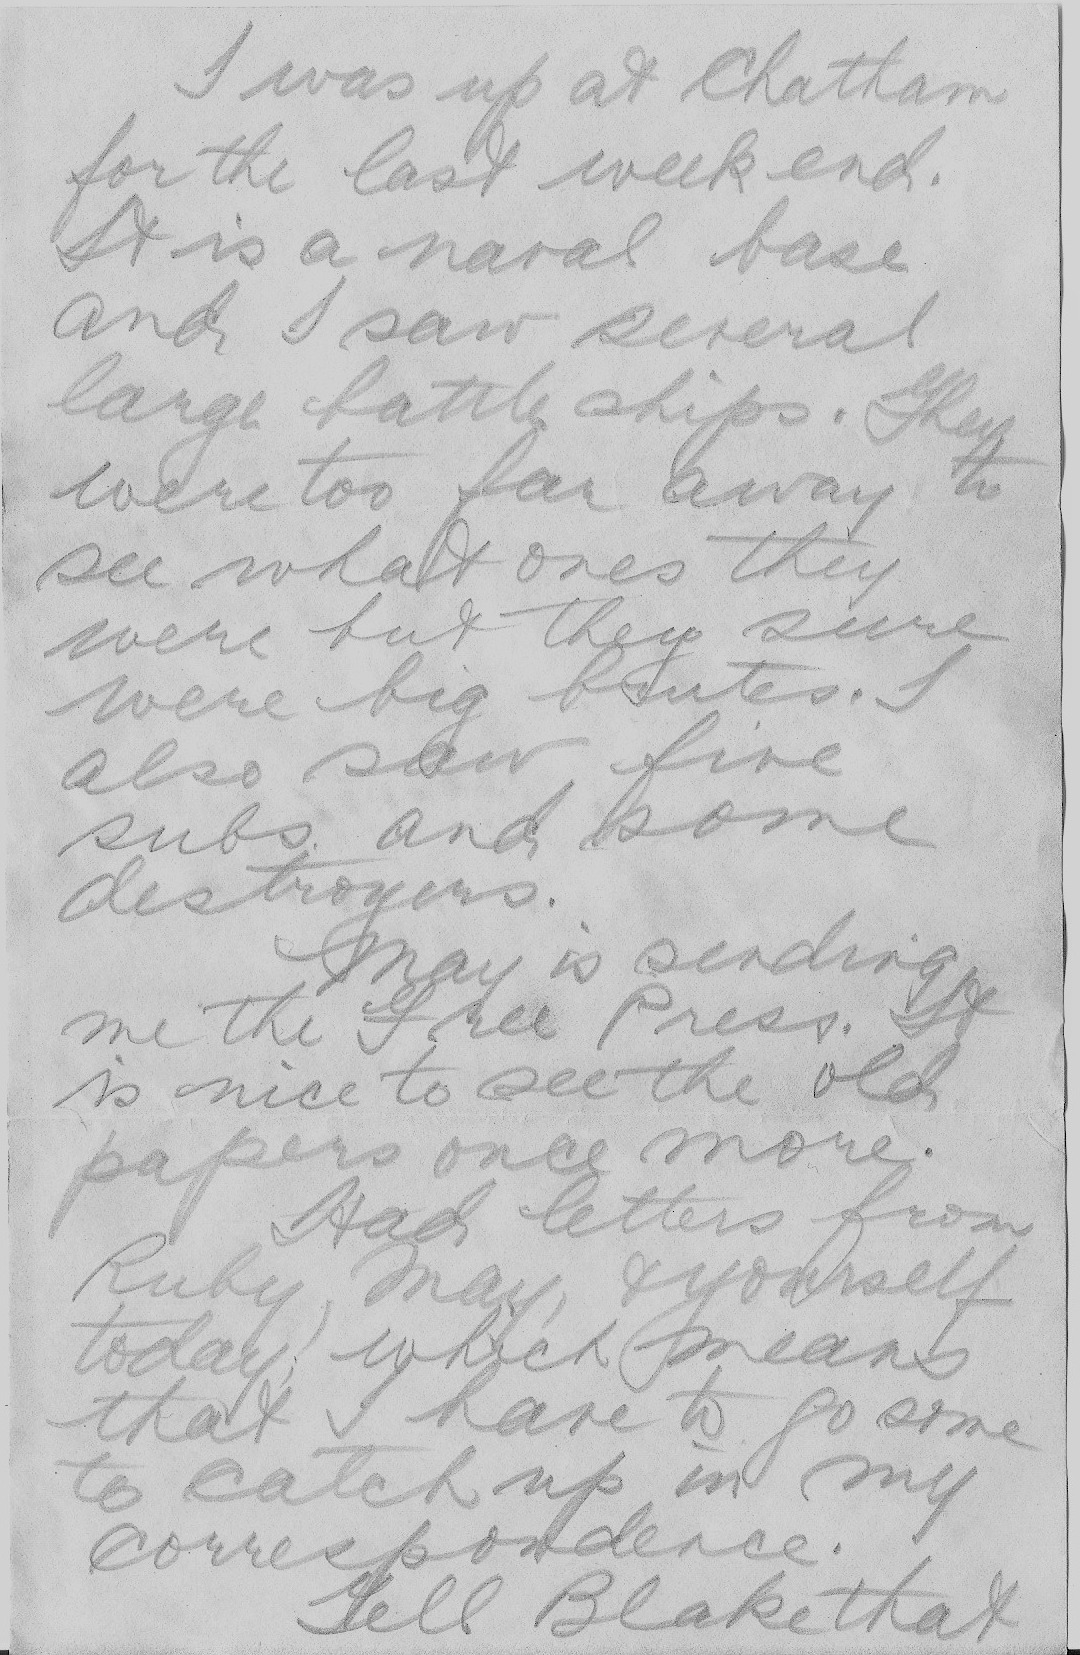 I was up at Chatham
for the last week end.
It is a naval base
and I saw several
large battle ships. They
were too far away to
see what ones they
were but they sure
were big brutes. I
also saw five
subs. and some
destroyers.
May is sending
me the Free Press. It
is nice to see the old
papers once more.
Had letters from
Ruby, May, & yourself
today, which means
that I have to go some
to catch up in my
correspondence.
Tell Blake that